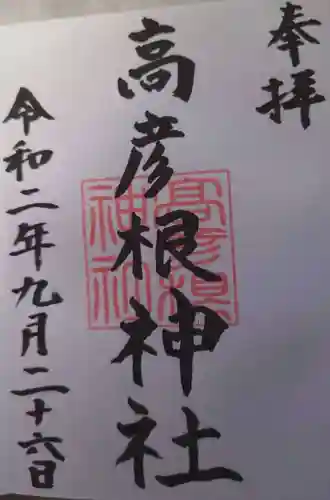 奉拝
高彦根神社
高彦根神社
令和二年九月二十六日